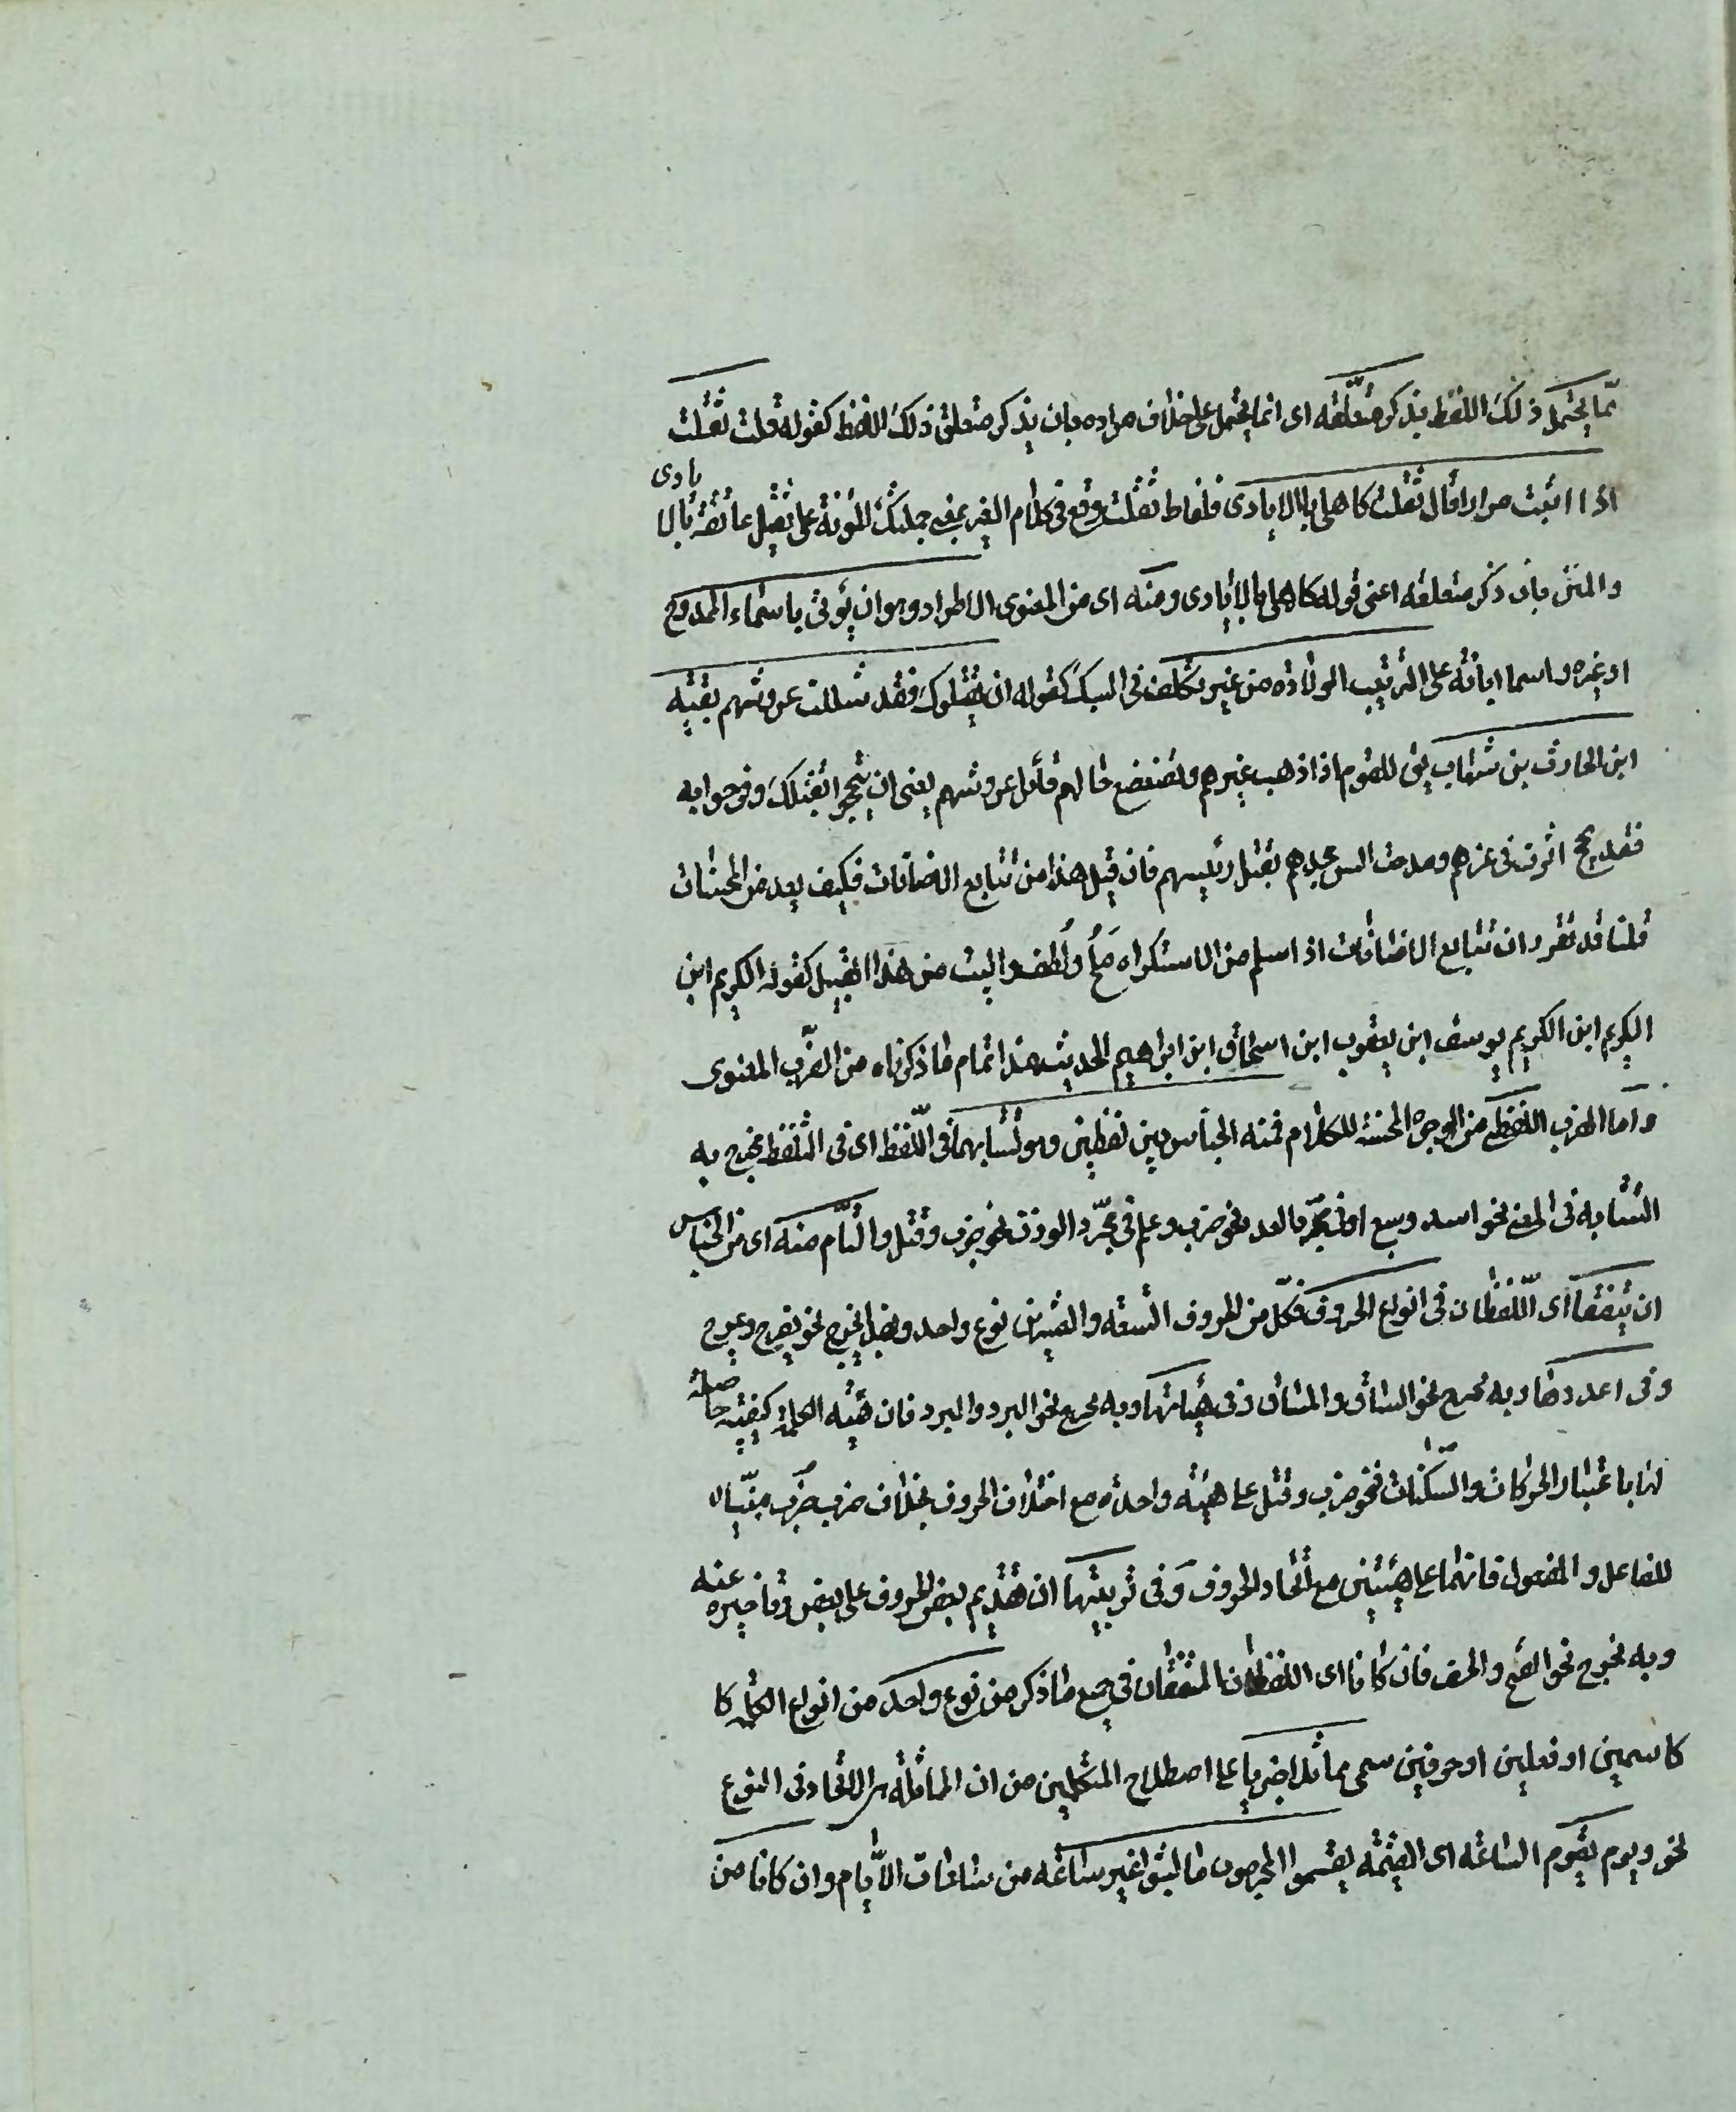 مما يحتمل ذلك اللفظ بذكر متعلقه اى انما يحتمل على خلاف مراده بان يذكر متعلق ذلك اللفظ كقوله قلت ثقلت
اذا اتيت مرارا قال ثقلت كاهلى بالايادى فلفظ ثقلت وقع فى كلام الغير بمعنى حملتك المؤنة على ثقيل عاتقه بالايادى
والمنن بان ذكر متعلقه اعنى قوله كاهلى بالايادى ومنه اى من المعنوى الاطراد وهو ان يؤتى باسماء الممدوح
او غيره واسما ابائه على الترتيب الولادة من غير تكلف فى السبك كقوله ان يقتلوك فقد ثللت عروشهم بعتيبه
ابن الحارث بن شهاب يق للقوم اذا ذهب عزهم وتضعضع حالهم قد ثل عروشهم يعنى ان تبجحوا بقتلك وفرحوا به
فقد اثرت فى عزهم وهدمت اساس مجدهم بقتل رئيسهم فان قيل هذا من تتابع الاضافات فكيف يعد من المحسنات
قلنا قد تقرر ان تتابع الاضافات اذا سلم من الاستكراه ملح ولطف والبيت من هذا القبيل كقوله الكريم ابن
الكريم ابن الكريم يوسف ابن يعقوب ابن اسحاق ابن ابراهيم الحديث هذا تمام ما ذكرناه من الضرب المعنوى
واما الضرب اللفظى من الوجوه المحسنة للكلام فمنه الجناس بين لفظين وهو تشابههما فى اللفظ اى فى التلفظ يخرج به
التشابه فى المعنى نحو اسد وسبع او فى مجرد العدد نحو ضرب وعلم او فى مجرد الوزن نحو ضرب وقتل والتام منه اى من الجناس
ان يتفقا اى اللفظان فى انواع الحروف فكل من الحروف التسعة والعشرين نوع واحد وبهذا يخرج نحو يفرح ويمرح
وفى اعدادها وبه يخرج نحو الساق والمساق وفى هيئاتها وبه يخرج نحو البرد والبرد فان هيئه الكلمة كيفيه حاصلة
لها باعتبار الحركات والسكنات فنحو ضرب وقتل على هيئه واحدة مع اختلاف الحروف بخلاف ضرب ضرب مبنيان
للفاعل والمفعول فانهما على هيئتين مع اتحاد الحروف وفى ترتيبها اى تقديم بعض الحروف على بعض وتاخيره عنه
وبه يخرج نحو الفتح والحتف فان كانا اى اللفظان المتفقان فى جميع ما ذكر من نوع واحد من انواع الكلمة كا
كاسمين او فعلين او حرفين سمى مماثلا جريا على اصطلاح المتكلمين من ان المماثلة هى الاتحاد فى النوع
نحو ويوم تقوم الساعه اى القيمه يقسموا المجرمون ما لبثوا غير ساعه من ساعات الايام وان كانا من